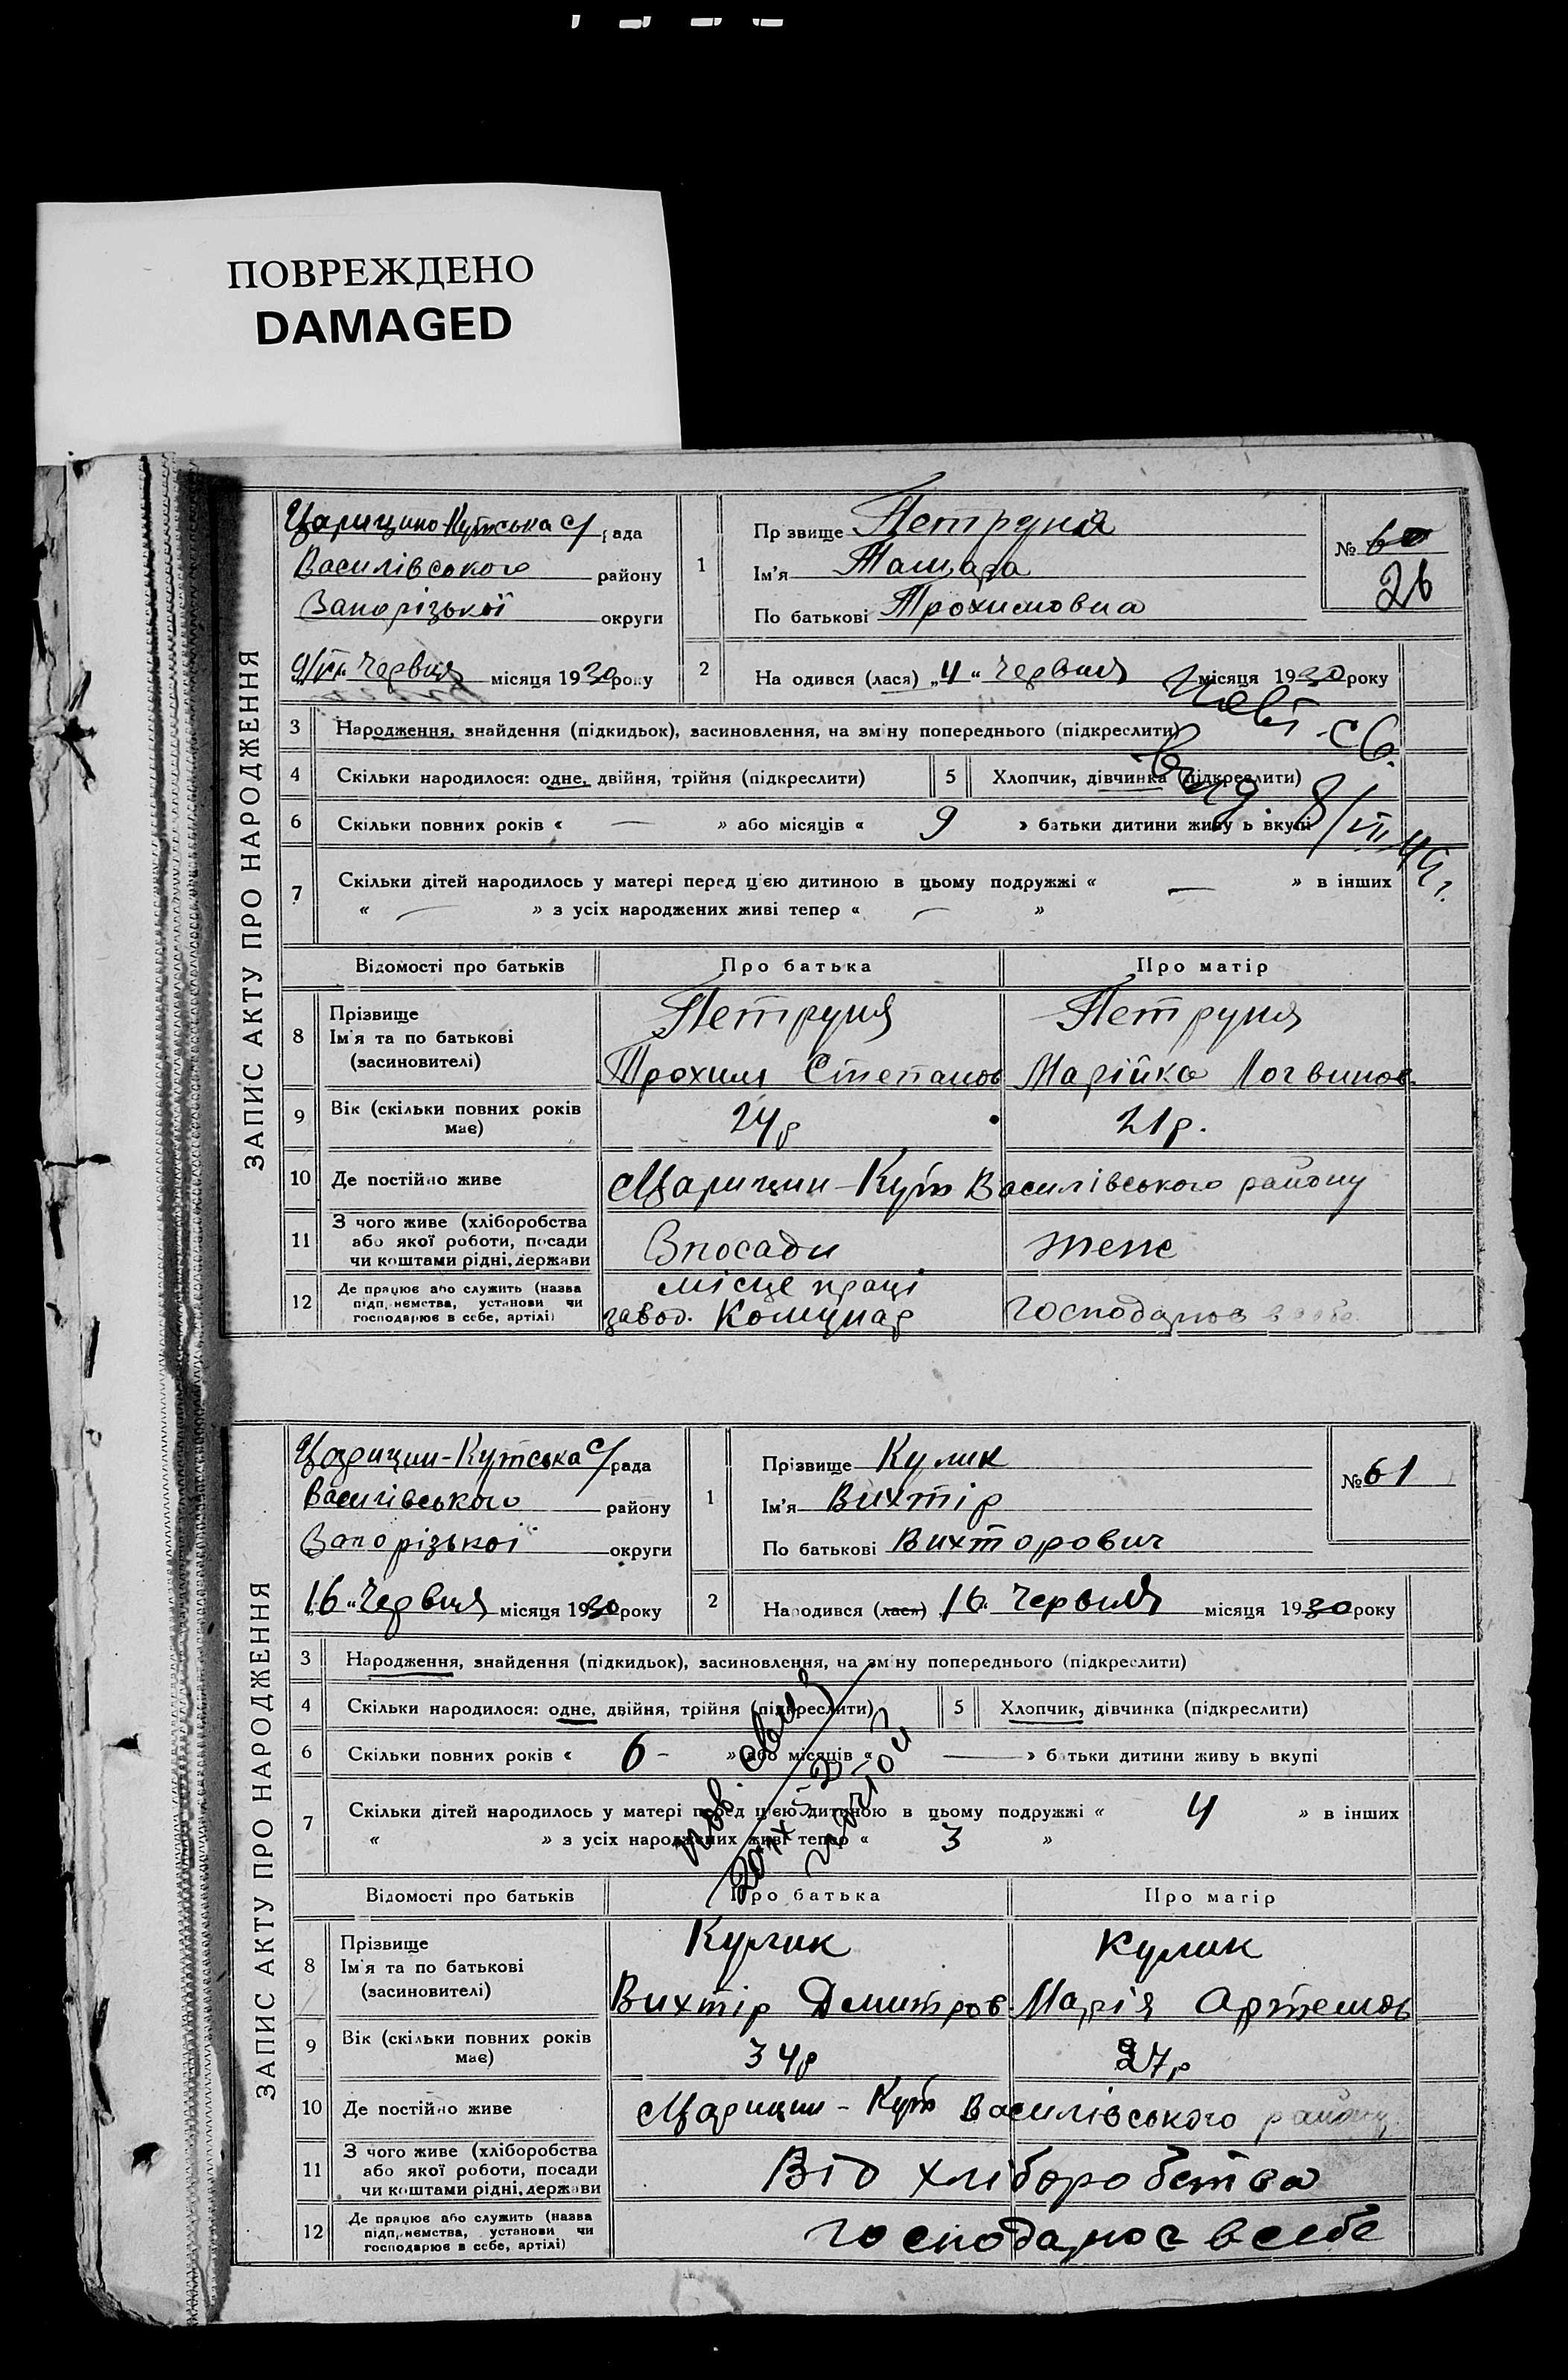 ПОВРЕЖДЕНО
DAMAGED
ЗАПИС АКТУ ПРО НАРОДЖЕННЯ
Царицино-Кутська с/рада
Василівського району
Запорізької округи
9/VI Червця місяця 1930 року
1 Прізвище Петруня
Ім'я Тамара
По батькові Трохимовна
№ 60
26
2 Народився (лася) „4“ Червця місяця 1930 року
3 Народження, знайдення (підкидьок), засиновлення, на зміну попереднього (підкреслити)
4 Скільки народилося: одне, двійня, трійня (підкреслити) 5 Хлопчик, дівчинка (підкреслити)
6 Скільки повних років « — » або місяців « 9 » батьки дитини живуть вкупі
7 Скільки дітей народилось у матері перед цією дитиною в цьому подружжі « — » в інших
« — » з усіх народжених живі тепер « — »
св.
вид. 8/VII
Відомості про батьків Про батька Про матір
8 Прізвище Ім'я та по батькові (засиновителі)
Петруня Петруня
Трохим Степанов Марійка Логвинов.
9 Вік (скільки повних років має) 24р 21р.
10 Де постійно живе Царицин-Кут Василівського району
11 З чого живе (хліборобства або якої роботи, посади чи коштами рідні, держави
Впосади теж
12 Де працює або служить (назва підприємства, установи чи господарює в себе, артілі)
місце праці
завод. Комунар господарює в себе
ЗАПИС АКТУ ПРО НАРОДЖЕННЯ
Царицин-Кутська с/рада
Василівського району
Запорізької округи
„16“ Червця місяця 1930 року
1 Прізвище Кулик
Ім'я Вихтір
По батькові Вихторович
№ 61
2 Народився (лася) 16 Червця місяця 1930 року
3 Народження, знайдення (підкидьок), засиновлення, на зміну попереднього (підкреслити)
4 Скільки народилося: одне, двійня, трійня (підкреслити) 5 Хлопчик, дівчинка (підкреслити)
6 Скільки повних років « 6 - » або місяців « — » батьки дитини живуть вкупі
7 Скільки дітей народилось у матері перед цією дитиною в цьому подружжі « 4 » в інших
« » з усіх народжених живі тепер « 3 »
Відомості про батьків Про батька Про матір
8 Прізвище Ім'я та по батькові (засиновителі)
Кулик Кулик
Вихтір Дмитров. Марія Артемов
9 Вік (скільки повних років має) 34р 27р
10 Де постійно живе Царицин-Кут Василівського району
11 З чого живе (хліборобства або якої роботи, посади чи коштами рідні, держави
Від хліборобства
12 Де працює або служить (назва підприємства, установи чи господарює в себе, артілі)
господарює в себе